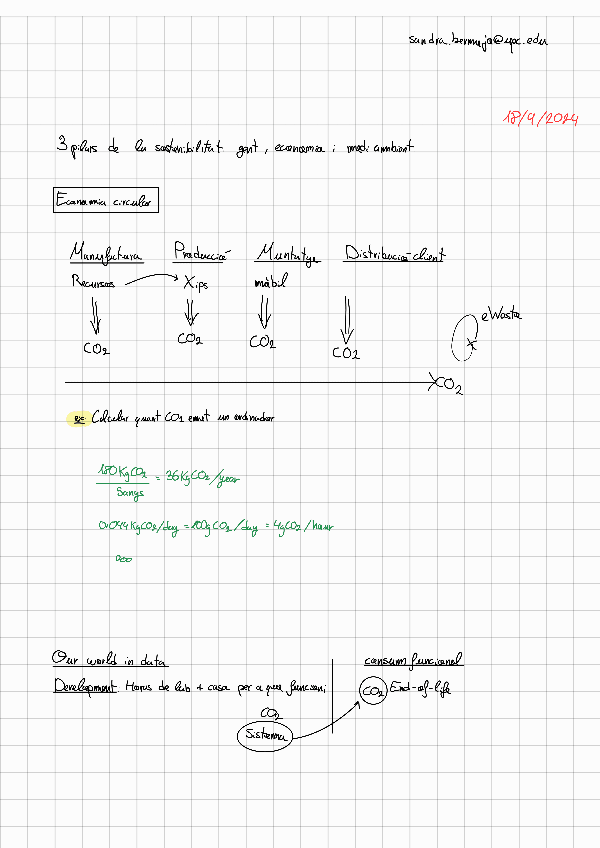 sandra.bermejo@upc.edu
18/9/2024
3 pilars de la sostenibilitat gent, economia i medi ambient
Economia circular
Manufactura Producció Muntatge Distribució-client
Recursos Xips mòbil
eWaste
CO2 CO2 CO2 CO2
CO2
ex: Calcular quant CO2 emet un ordinador
180KgCO2 / 5anys = 36KgCO2/year
KgCO2/day = 100gCO2/day = 4gCO2/hour
Our world in data consum funcional
Development: Hores de lab + casa per a que funcioni CO2 End-of-life
CO2
Sistema